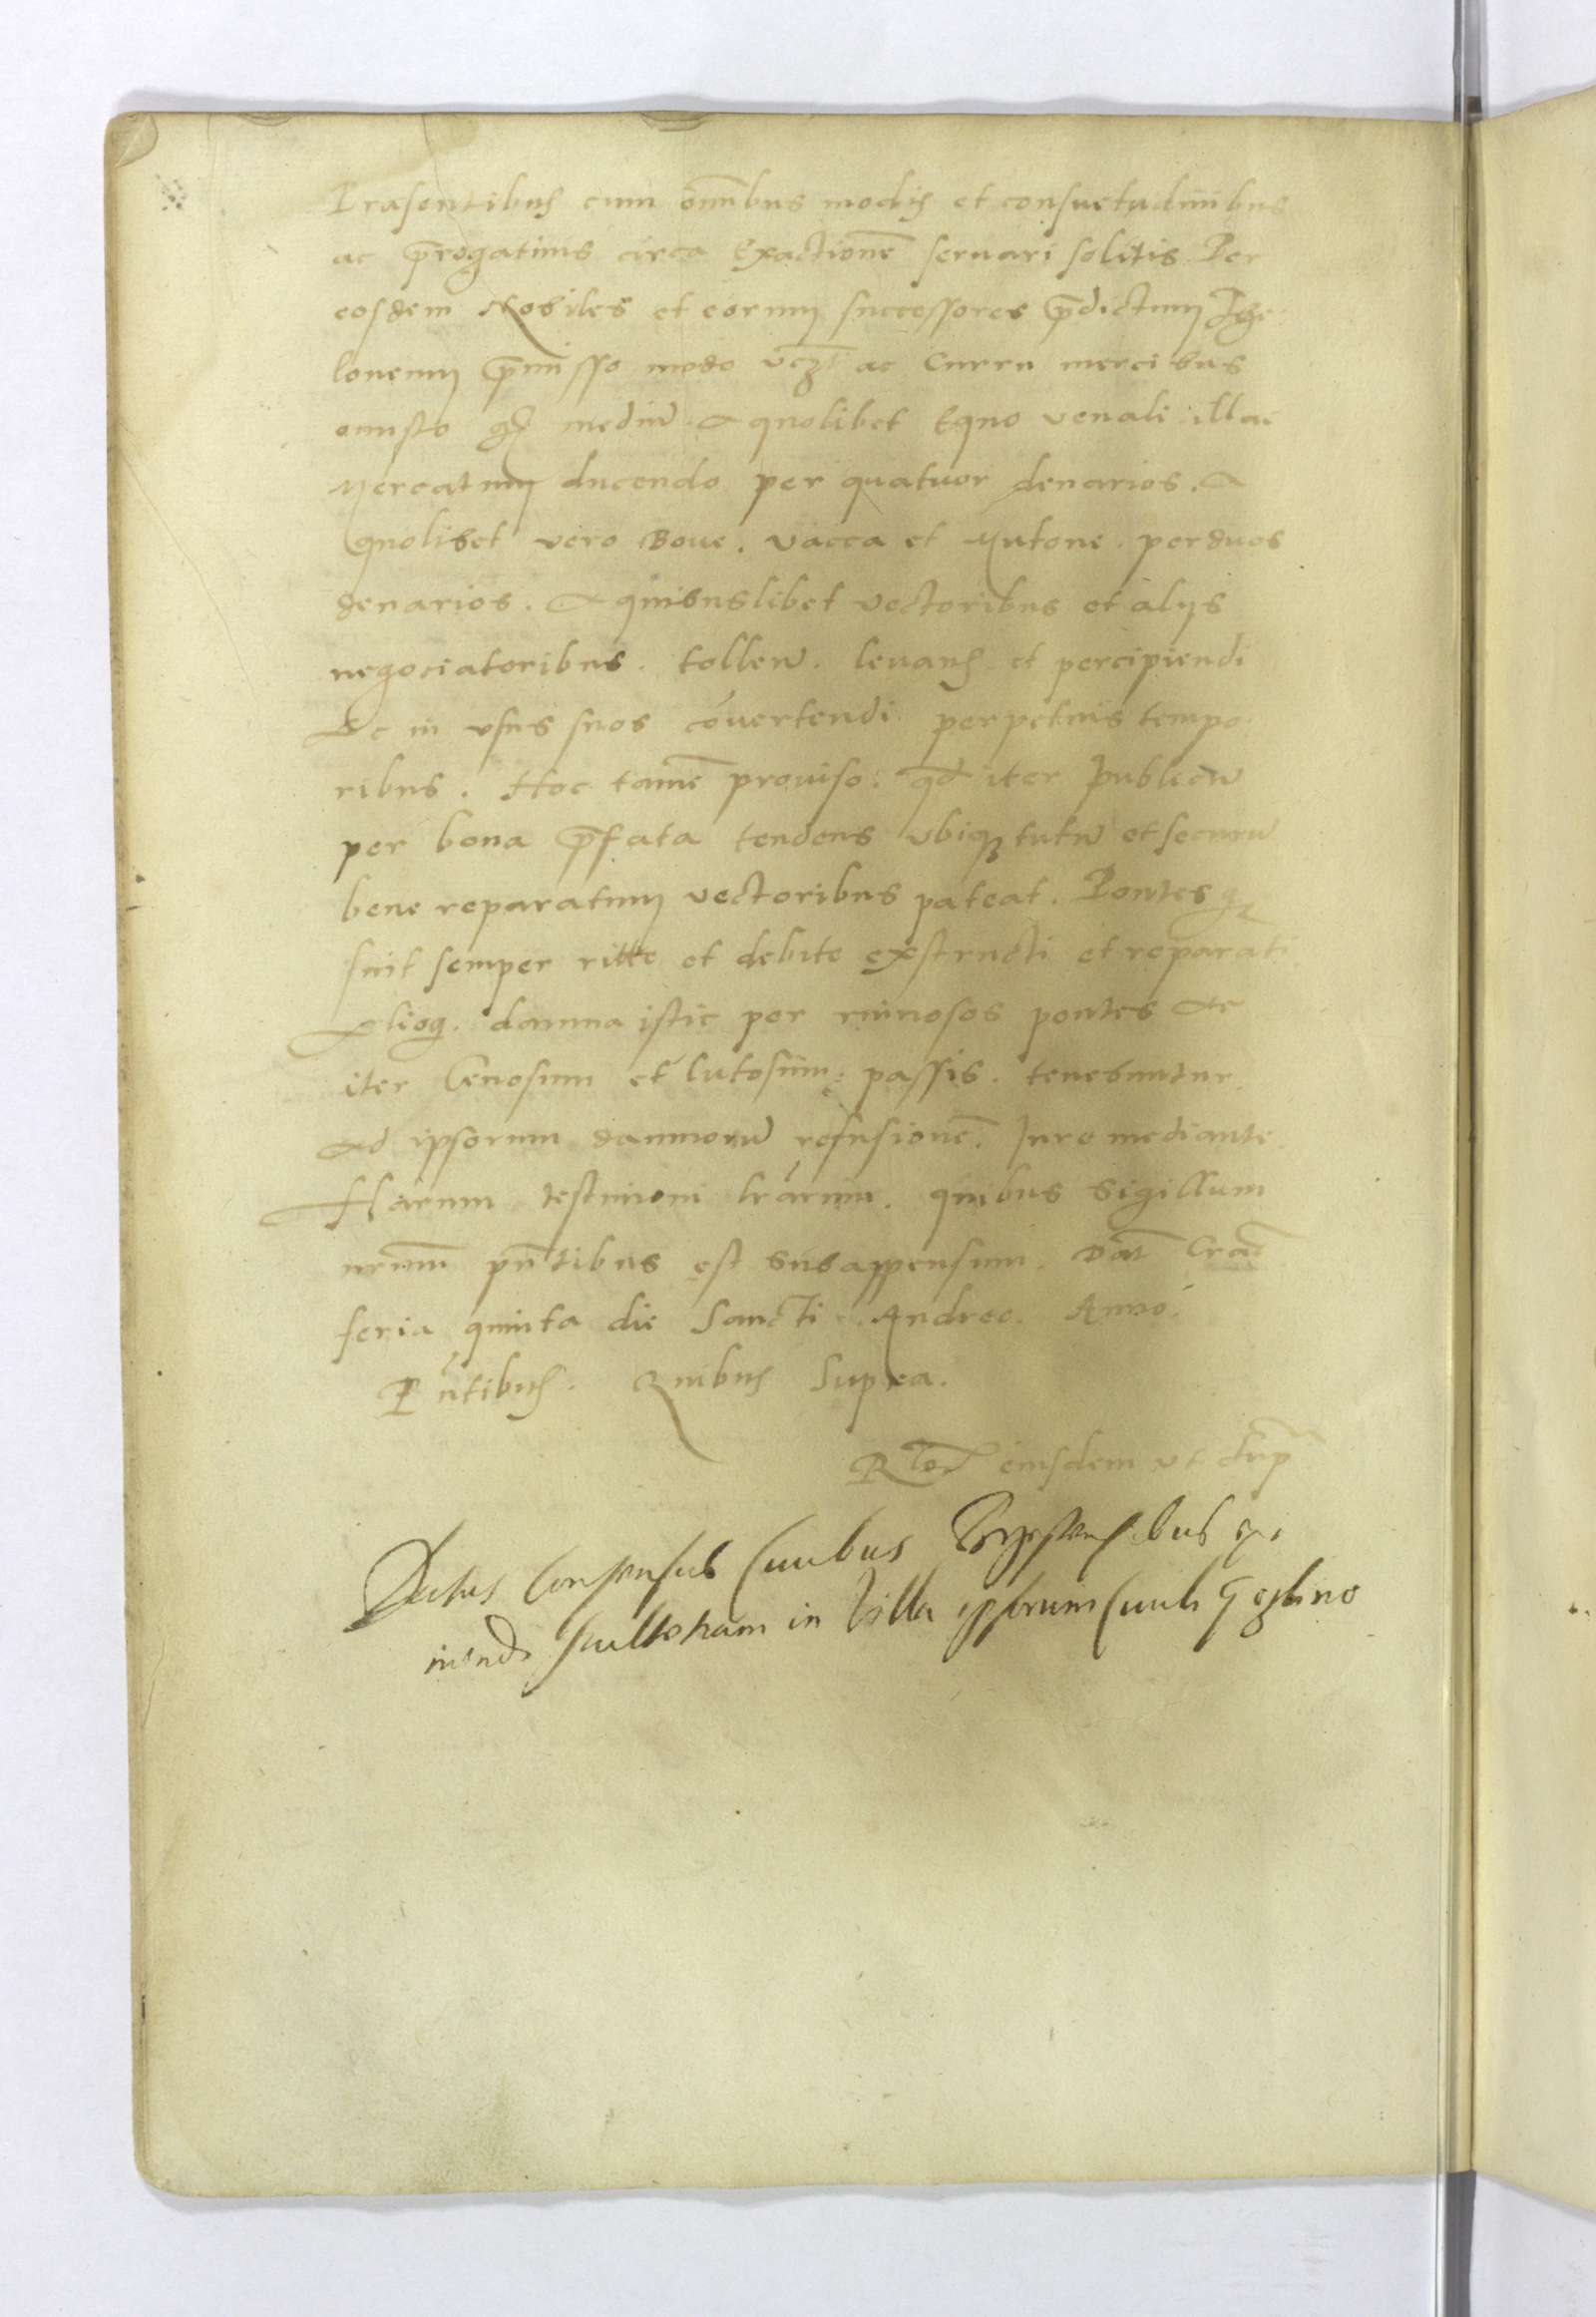 Prasentibus cum omībus modis et consuetudinibus
ac p̄rogatiuis circa Exactionē seruari solitis Per
eosdem Nobiles et eorum successores p̄dictum The
loneum p̄misso modo vcz̄ ac Curru mercibus
onusto mediū. A quolibet Equo venali illac
Mercatum ducendo per quatuor denarios. A
quolibet vero Boue. Vacca et Mutone. per duos
denarios. A quibuslibet vectoribus et alijs
negociatoribus. tollen̄. leuandi et percipiendi
Ac in vsus suos cōuertendi perpetuis tempo
ribus. Hoc tamē prouiso: qd̄ iter Publicū
per bona p̄fata tendens vbiqꝫ tutū et securū
bene reparatum vectoribus pateat. Pontesqꝫ
sint semper ritte et debite exstructi et reparati
Alioq. damna istic per ruinosos pontes Ac
iter Cenosum et lutosum: passis. tenebuntur
Ad ipsorum damnorū refusionē. Jure mediante
Harum testimoni lrārum. quibus Sigillum
nrūm pn̄tibus est subappensum. Dat̄ Crac̄
feria quinta die Sancti Andree. Anno.
Pn̄tibus. Quibus Supra.
Rlō eiusdem vt sup̄
Datus Consensus Ciuibus
imendi scultetiam in Villa ipsorum Ciuili